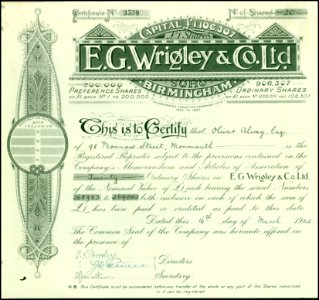 Certificate No 3539 No of Shares 20
CAPITAL £1,106,507
IN £1 Shares
E.G. Wrigley & Co. Ltd
SOHO
BIRMINGHAM
200,000 906,507
PREFERENCE SHARES ORDINARY SHARES
OF £1 EACH
This is to Certify that Oliver Esq.
of 98 Monnow Street, Monmouth is the
Registered Proprietor subject to the provisions contained in the
Company's Memorandum and Articles of Association of
Twenty Ordinary Shares in E.G. Wrigley & Co. Ltd
of the Nominal Value of £1 each bearing the serial Numbers
to both inclusive on each of which the sum of
£1, has been paid or credited as paid to this date
Dated this 16th day of March
The Common Seal of the Company was hereunto affixed
in the presence of
Directors
Secretary
N.B. This Certificate must be surrendered before any transfer of the whole or any part of the Shares comprised
in it can be registered.